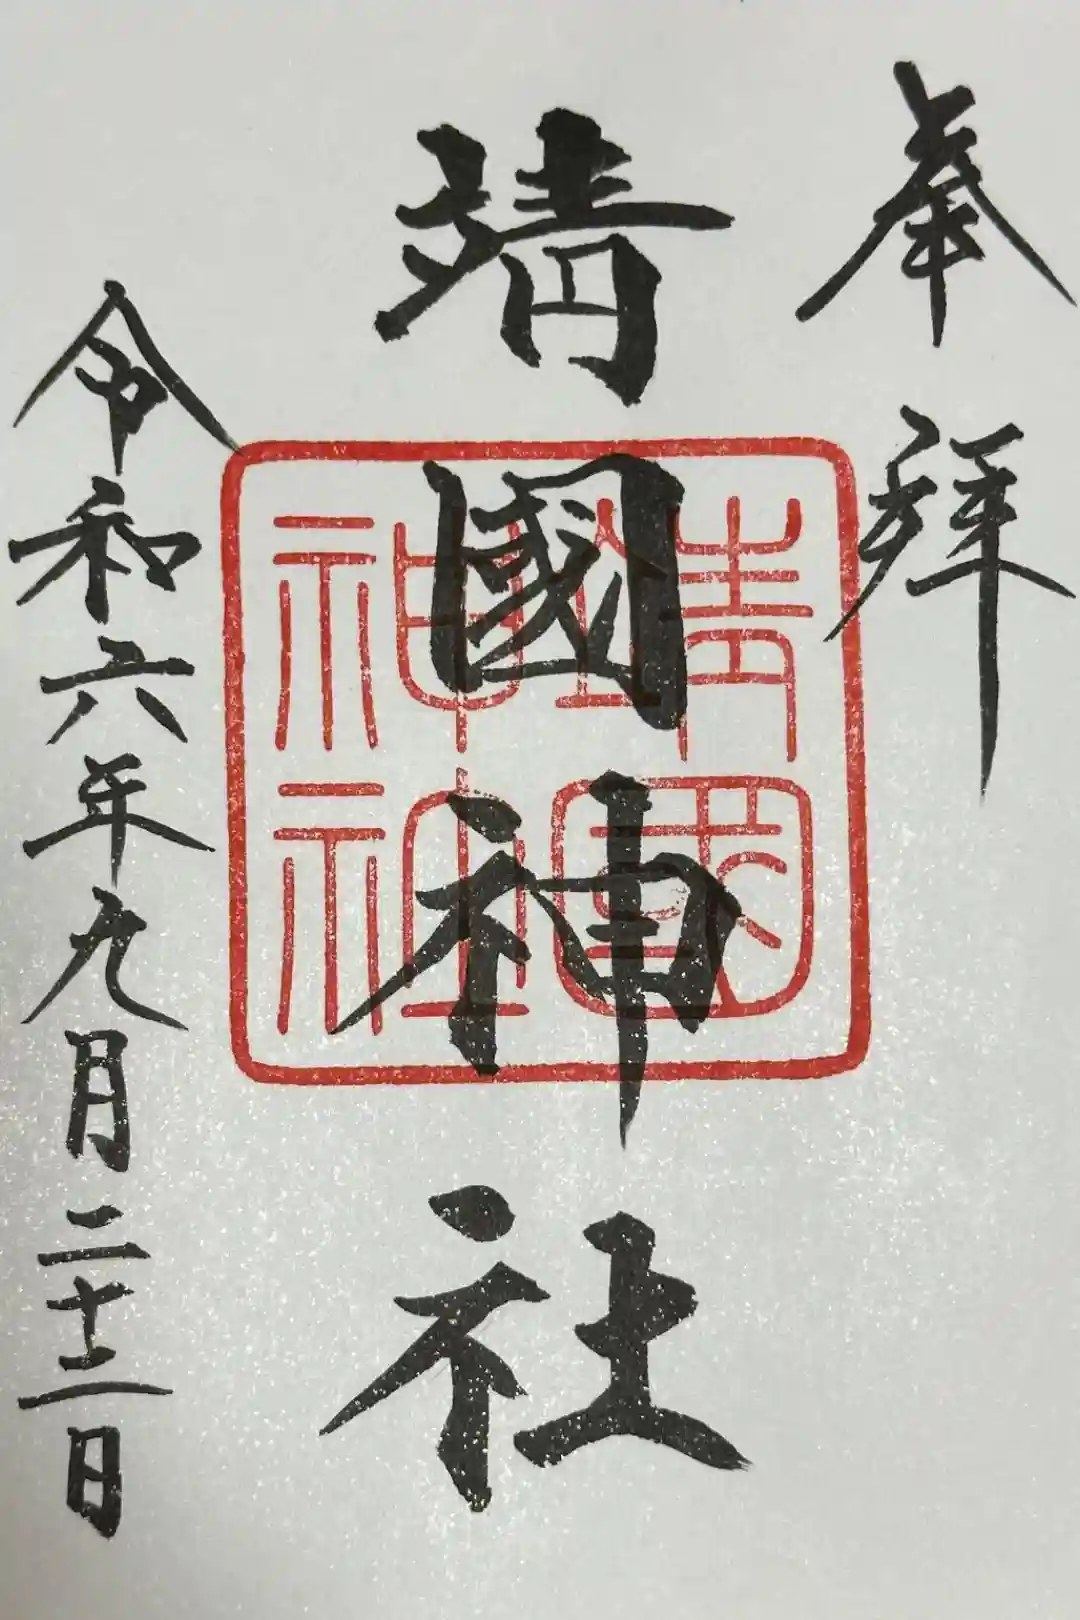 奉拝
靖國神社
靖國
神社
令和六年九月二十二日